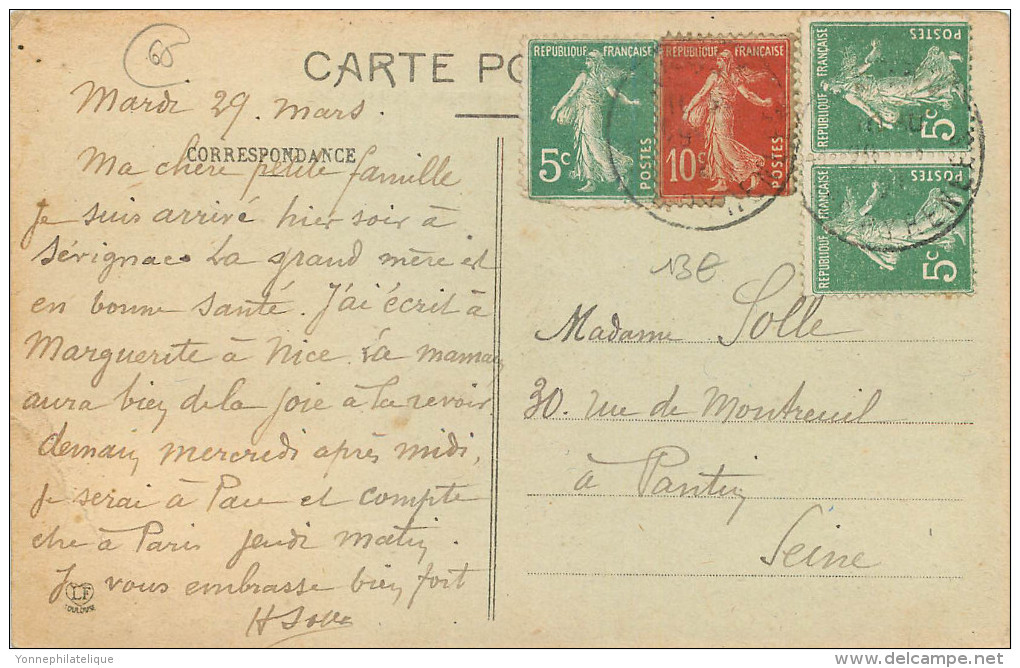 65
CARTE PO
Mardi 29. mars.
CORRESPONDANCE
Ma chère petite famille
Je suis arrivé hier soir à
Sérignac. La grand mère est
en bonne santé. J'ai écrit à
Marguerite à Nice. La maman
aura bien de la joie à la revoir.
demain mercredi après midi,
je serai à Pau et compte
être à Paris jeudi matin.
Je vous embrasse bien fort
H Solle
LF
TOULOUSE
REPUBLIQUE FRANÇAISE
5c
POSTES
REPUBLIQUE FRANÇAISE
10c
POSTES
REPUBLIQUE FRANÇAISE
5c
POSTES
REPUBLIQUE FRANÇAISE
5c
POSTES
13€
Madame Solle
30. rue de Montreuil
à Pantin
Seine
Yonnephilatelique
delcampe.net